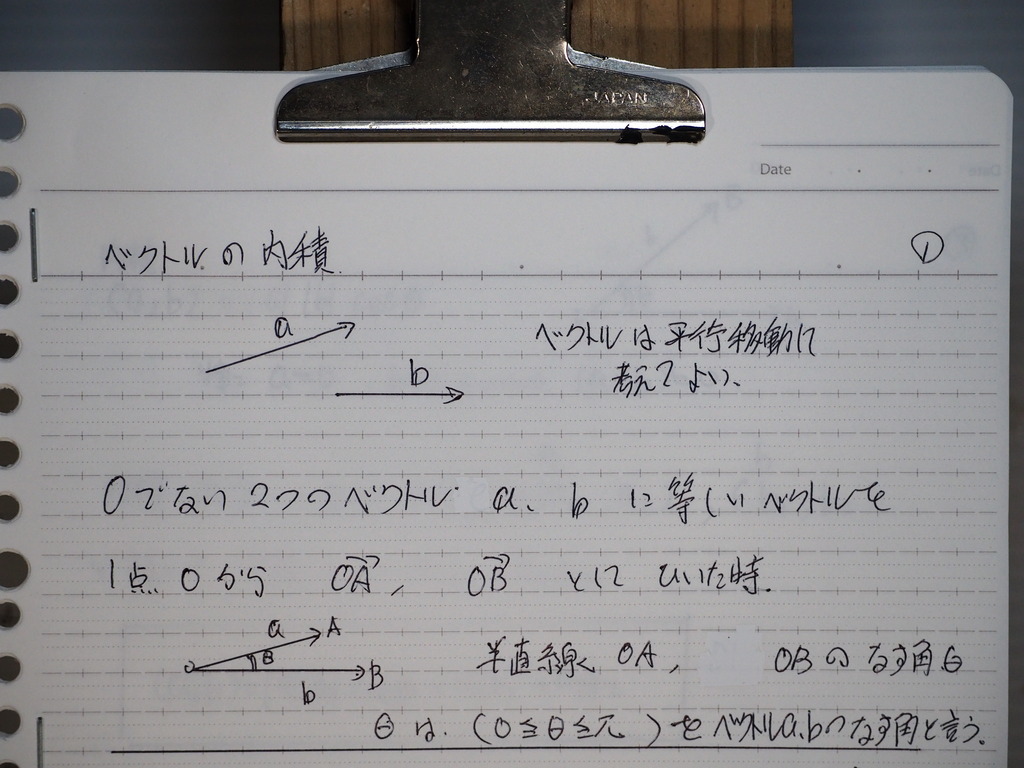 JAPAN
Date
ベクトルの内積 ①
a
ベクトルは平行移動に
b
考えてよい、
0でない2つのベクトル a、b に等しいベクトルを
1点 O から OA→, OB→ とにひいた時.
a A
θ
B
b
半直線 OA, OBのなす角θ
θは、(0≦θ≦π)をベクトルa.bのなす角と言う。